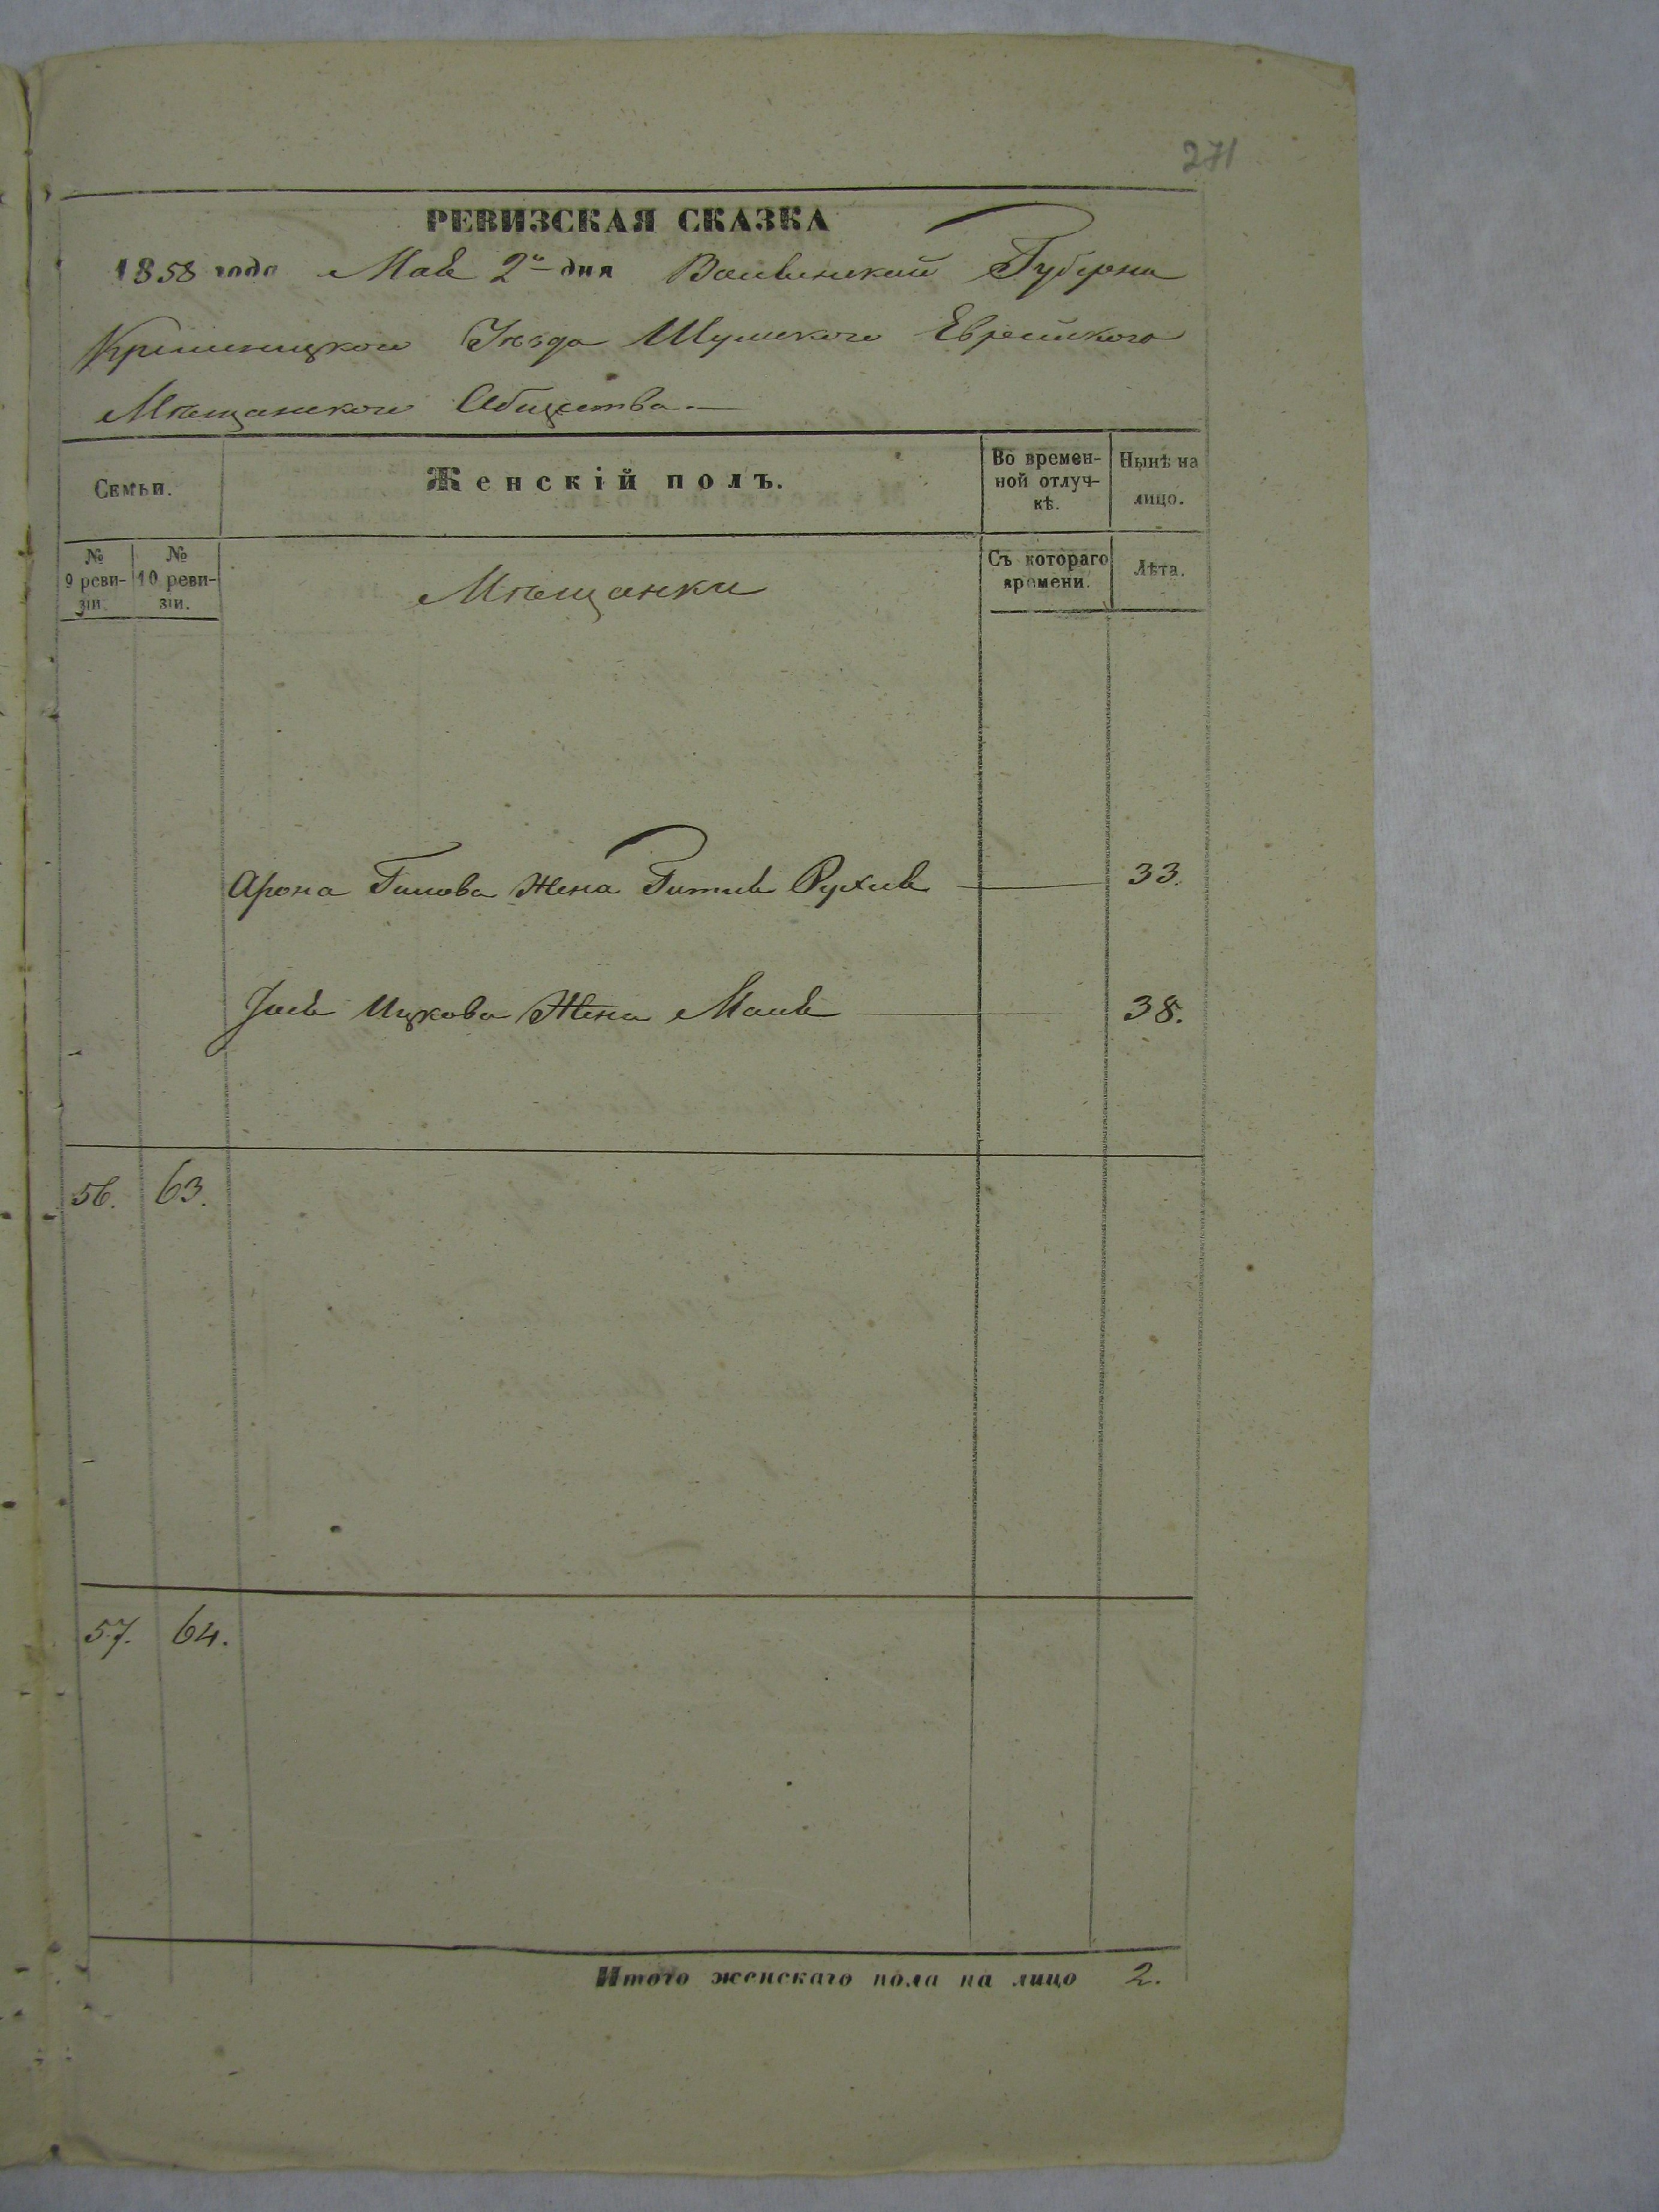 271
РЕВИЗСКАЯ СКАЗКА
1858 года Мая 2го дня Волынской Губерни
Кременецкого Уѣзда Шумского Еврейского
Мѣщанского Общества.—
Семьи.
Женскій полъ.
Во времен-
ной отлуч-
кѣ.
Нынѣ на
лицо.
№
9 реви-
зіи.
№
10 реви-
зіи.
Мѣщанки
Съ котораго
времени.
Лѣта.
Арона Жена Рухля 33.
Ицкова Жена 38.
56. 63.
57. 64.
Итого женскаго пола на лицо 2.